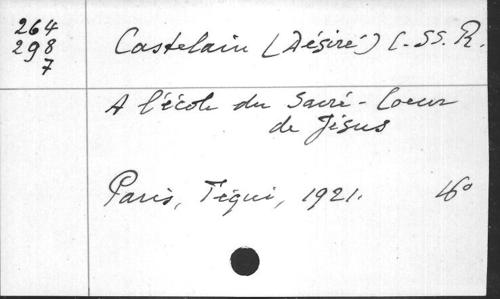 264
298
7
Castelain (Désiré) C. SS. R.
A l'école du Sacré-Coeur
de Jésus
Paris, Téqui, 1921. 16°